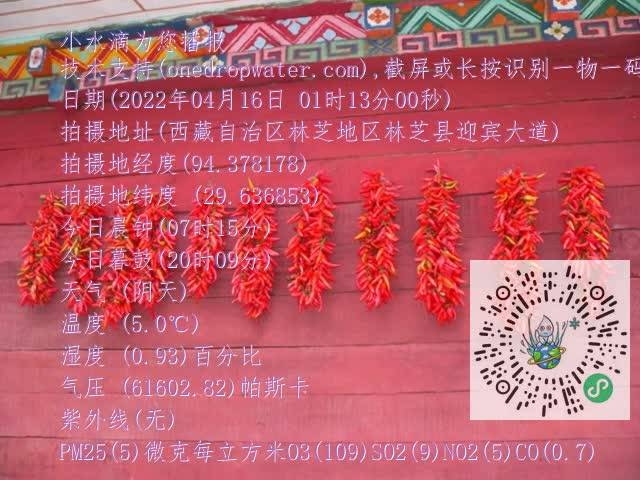 小水滴为您播报
技术支持(onedropwater.com),截屏或长按识别一物一码
日期(2022年04月16日 01时13分00秒)
拍摄地址(西藏自治区林芝地区林芝县迎宾大道)
拍摄地经度(94.378178)
拍摄地纬度 (29.636853)
今日晨钟(07时15分)
今日暮鼓(20时09分)
天气 (阴天)
温度 (5.0℃)
湿度 (0.93)百分比
气压 (61602.82)帕斯卡
紫外线(无)
PM25(5)微克每立方米O3(109)SO2(9)NO2(5)CO(0.7)